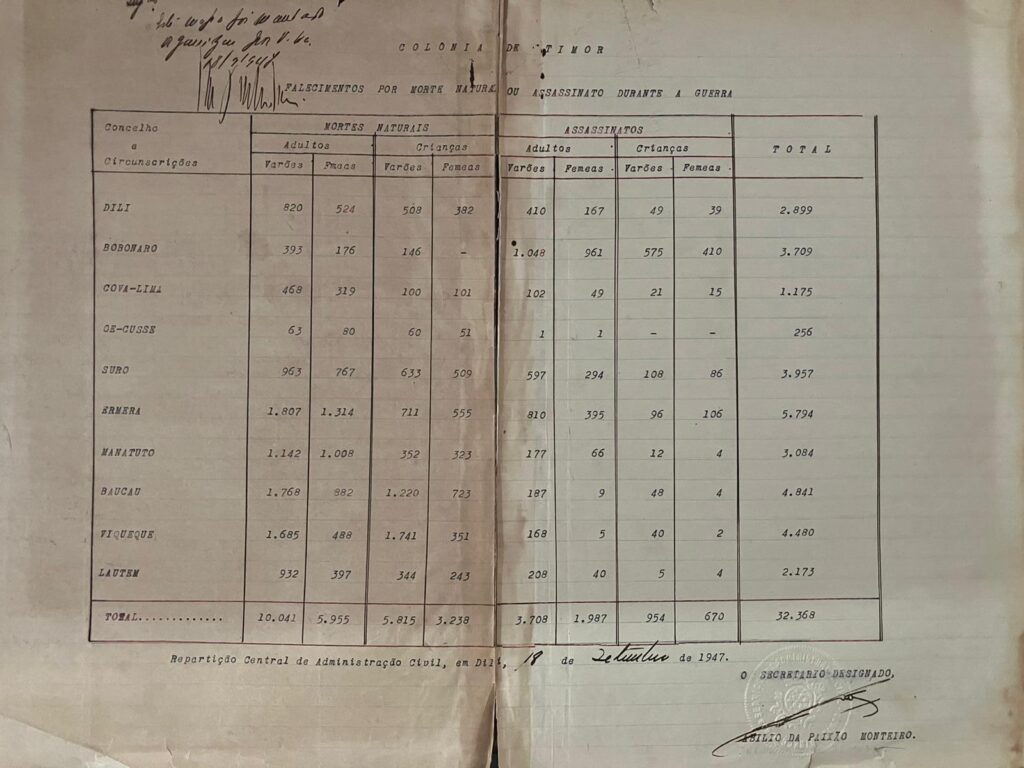 Este mapa foi
18/9/947
COLÓNIA DE TIMOR
FALECIMENTOS POR MORTE NATURAL OU ASSASSINATO DURANTE A GUERRA
Concelho e Circunscrições MORTES NATURAIS ASSASSINATOS TOTAL
Adultos Crianças Adultos Crianças
Varões Fmeas Varões Femeas Varões Femeas Varões Femeas
DILI 820 524 508 382 410 167 49 39 2.899
BOBONARO 393 176 146 - 1.048 961 575 410 3.709
COVA-LIMA 468 319 100 101 102 49 21 15 1.175
OE-CUSSE 63 80 60 51 1 1 - - 256
SURO 963 767 633 509 597 294 108 86 3.957
ERMERA 1.807 1.314 711 555 810 395 96 106 5.794
MANATUTO 1.142 1.008 352 323 177 66 12 4 3.084
BAUCAU 1.768 882 1.220 723 187 9 48 4 4.841
VIQUEQUE 1.685 488 1.741 351 168 5 40 2 4.480
LAUTEM 932 397 344 243 208 40 5 4 2.173
TOTAL............. 10.041 5.955 5.815 3.238 3.708 1.987 954 670 32.368
Repartição Central de Administração Civil, em Dili, 18 de Setembro de 1947.
O SECRETARIO DESIGNADO,
ABILIO DA PAIXÃO MONTEIRO.